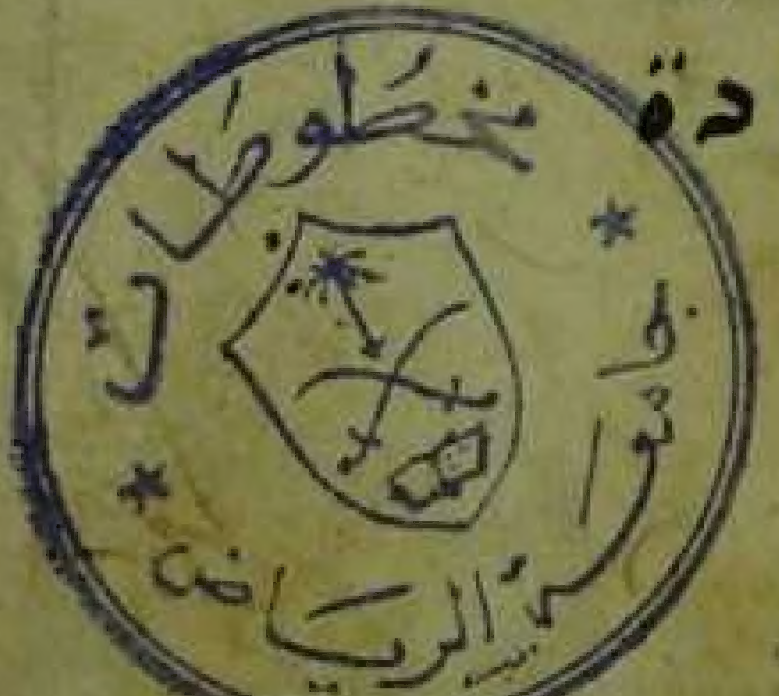 دة
مخطوطات
جامعة الرياض